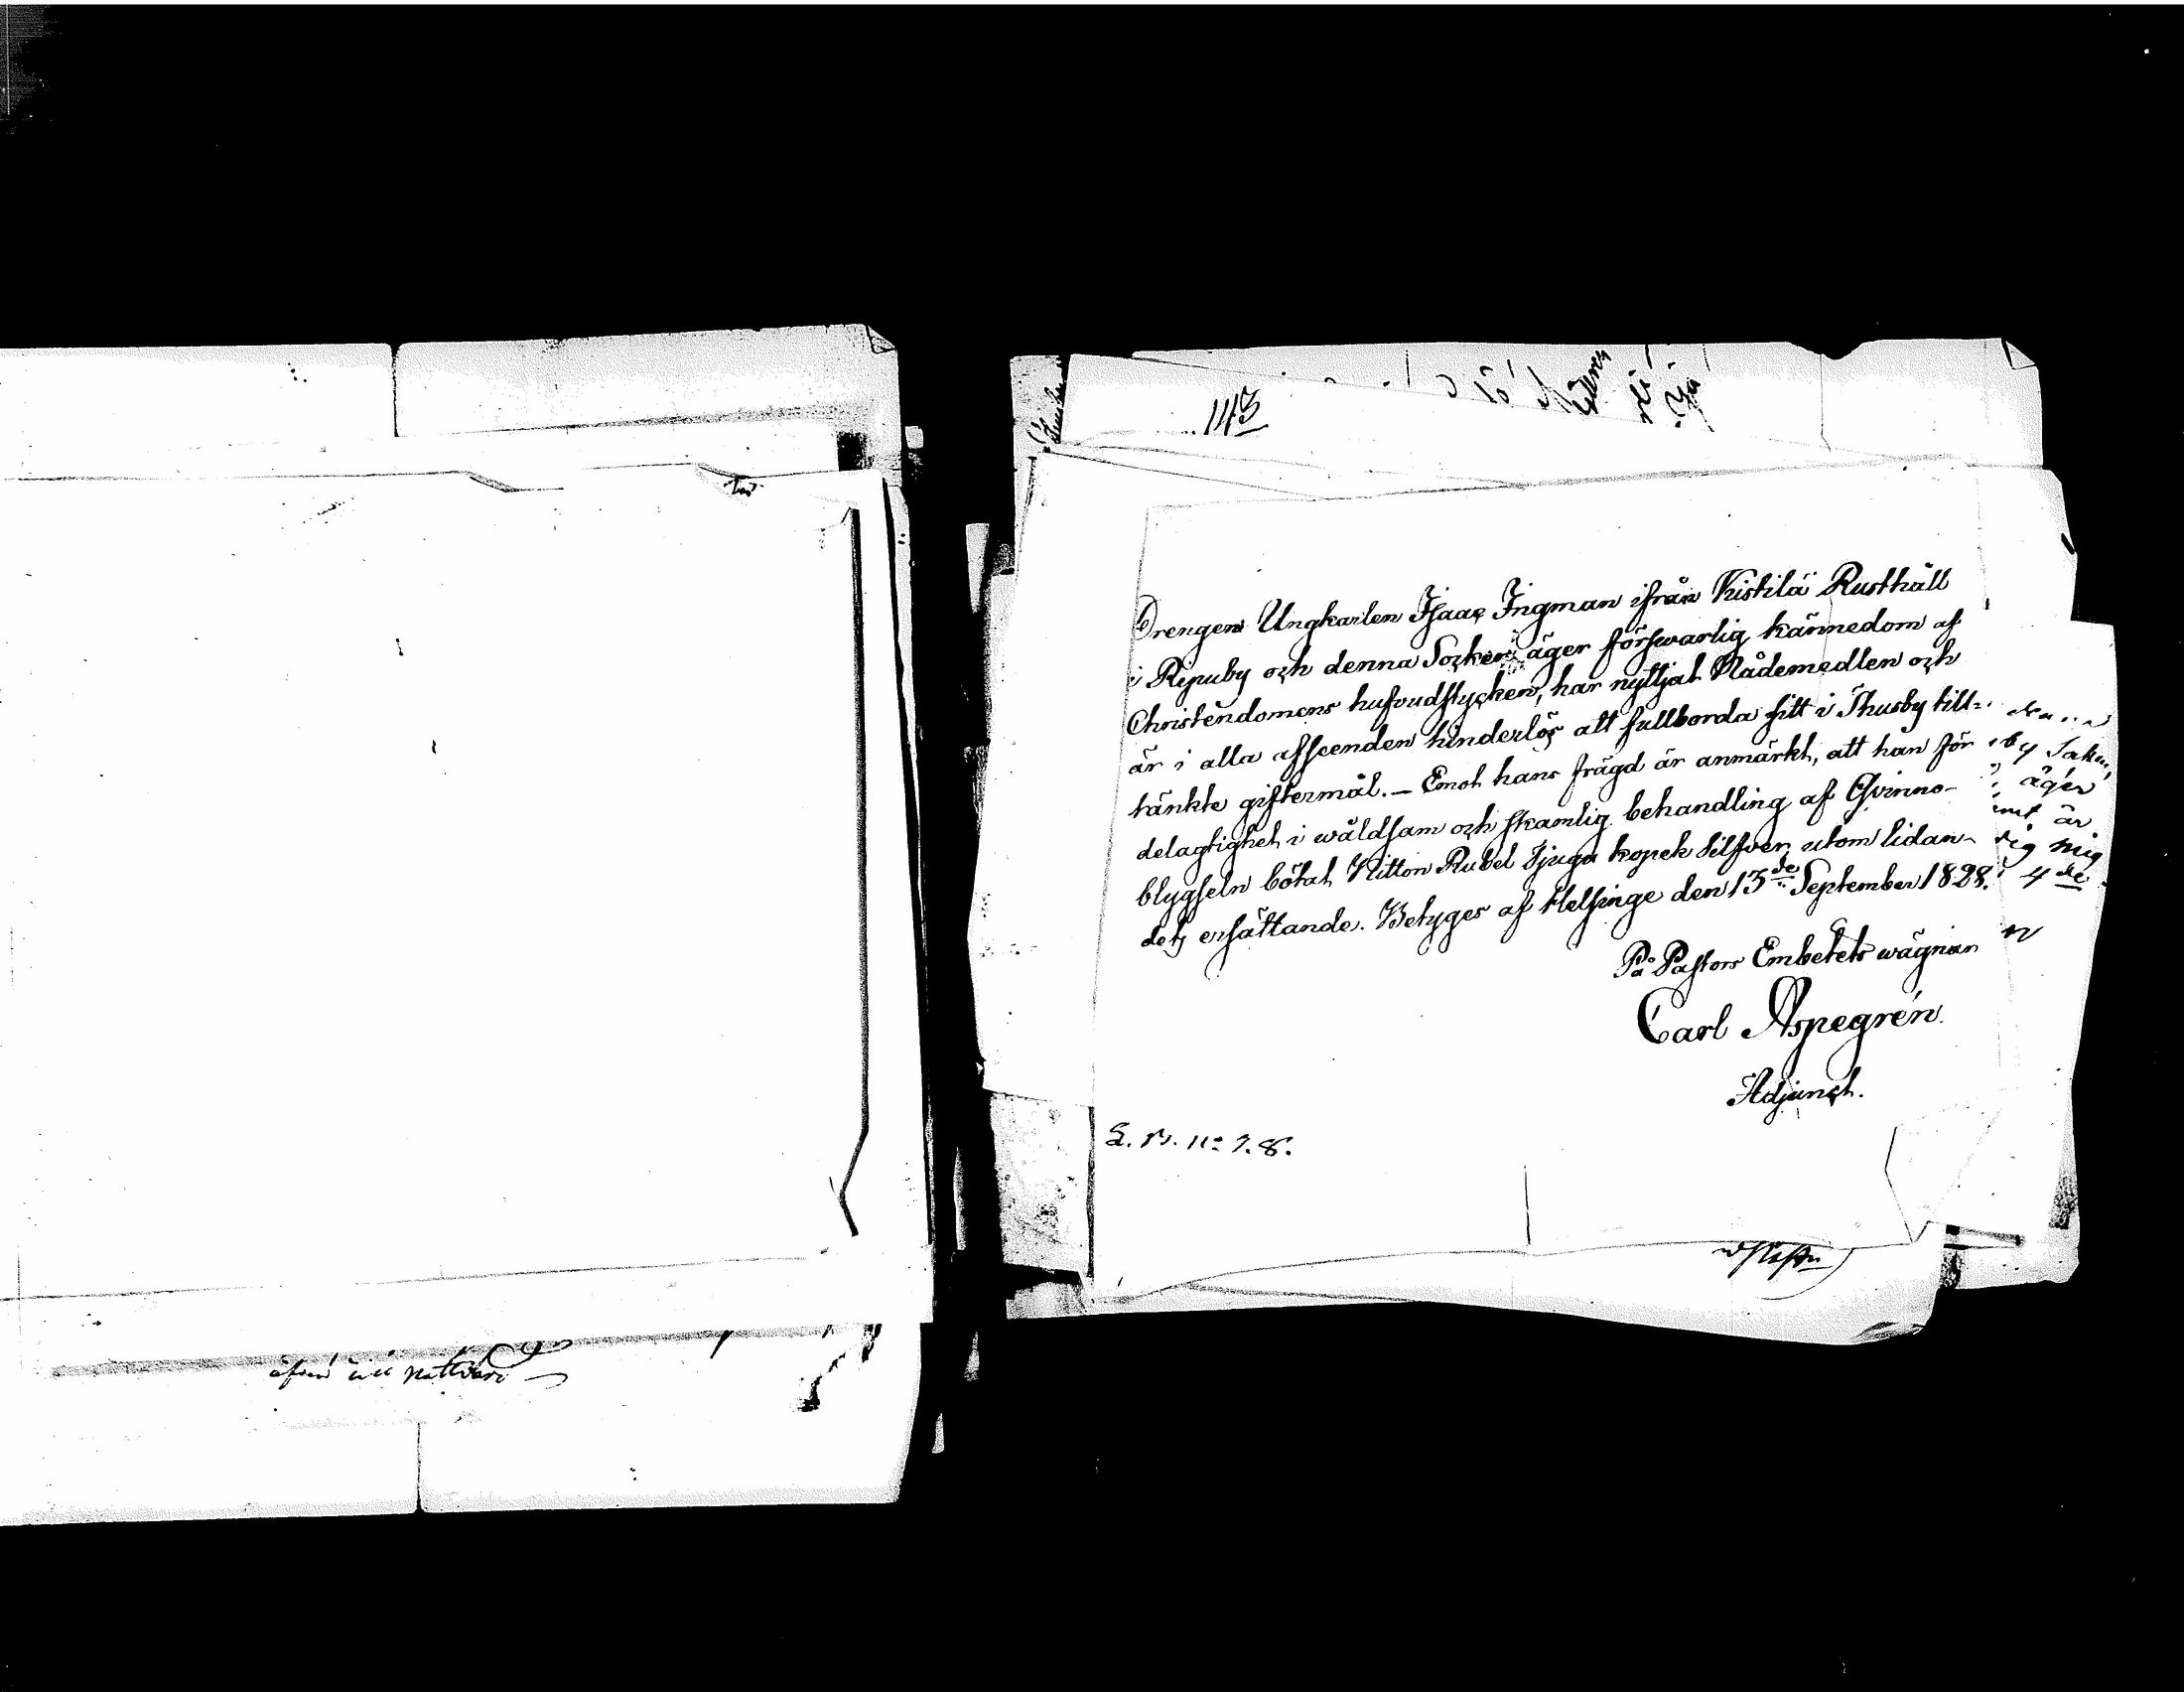 113
Drengen Ungkarlen Isaac Ingman ifrån Kistilä Rusthåll
i Ripuby och denna Socken äger försvarlig kännedom af
Christendomens hufvudstycken, har nyttjat Nådemedlen och
är i alla afseenden hinderlös att fullborda sitt i Thusby till-
tänkte giftermål. — Emot hans frägd är anmärkt, att han för
delagtighet i wåldsam och skamlig behandling af Qvinno-
blygseln bötat Nitton Rubel Tjugu kopek Silfver, utom lidan-
dets ersättande. Betyges af Helsinge den 13de September 1828.
På Pastors Embetets wägnar
Carl Aspegrén.
Adjunct.
äger
är
mig
4de